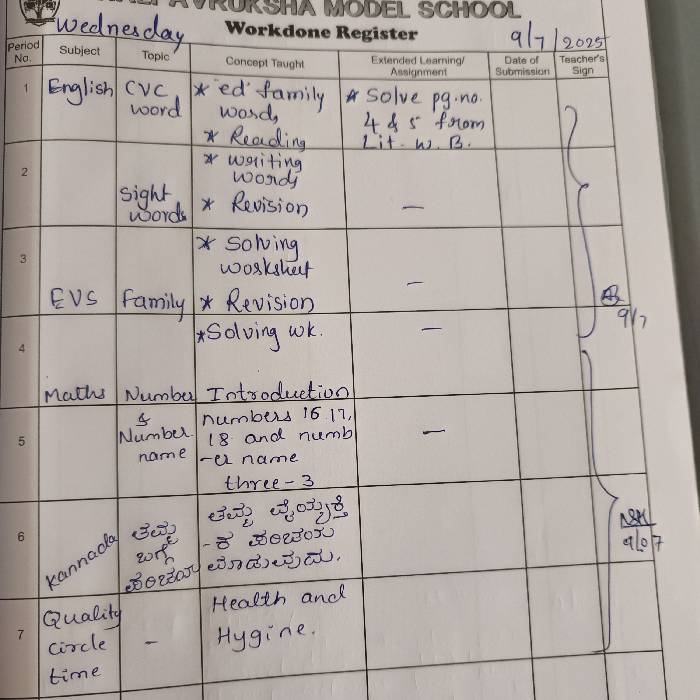 VRUKSHA MODEL SCHOOL
Wednesday
Workdone Register
9/7/2025
Period No. Subject Topic Concept Taught Extended Learning/ Assignment Date of Submission Teacher's Sign
1 English CVC word * 'ed' family words * Solve pg.no. 4 & 5 from Lit. W. B.
* Reading
2 * writing words
Sight words * Revision –
3 * Solving worksheet
EVS Family * Revision –
9/7
4 * Solving wk. –
Maths Number Introduction
5 & Number name numbers 16 17, 18 and numb -er name three - 3 –
6 Kannada ತಮ್ಮ ಬಗ್ಗೆ ಪರಿಚಯ ತಮ್ಮ ವೈಯ್ಯಕ್ತಿ -ಕ ಪರಿಚಯ ಮಾಡುವುದು.
9/07
7 Quality circle time – Health and Hygine.